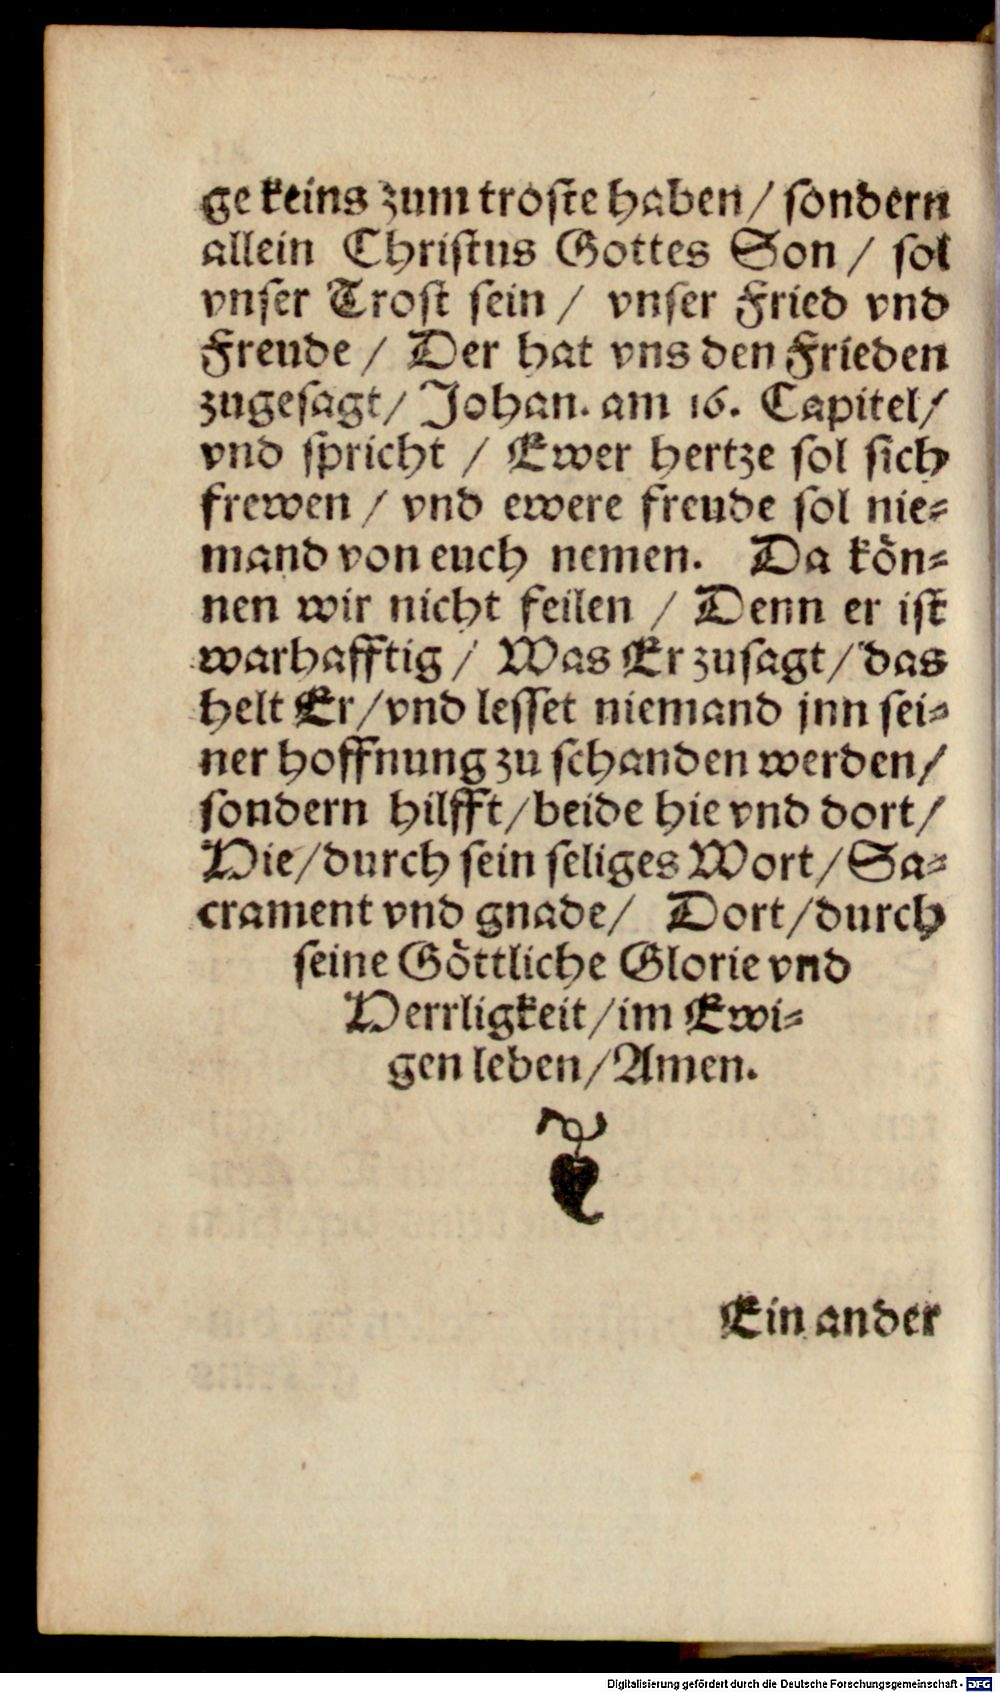 ge keins zum troste haben / sondern
allein Christus Gottes Son / sol
vnser Trost sein / vnser Fried vnd
Freude / Der hat vns den Frieden
zugesagt / Johan. am 16. Capitel /
vnd spricht / Ewer hertze sol sich
frewen / vnd ewere freude sol nie-
mand von euch nemen. Da kön-
nen wir nicht feilen / Denn er ist
warhafftig / Was Er zusagt / das
helt Er / vnd lesset niemand jnn sei-
ner hoffnung zu schanden werden /
sondern hilfft / beide hie vnd dort /
Hie / durch sein seliges Wort / Sa-
crament vnd gnade / Dort / durch
seine Göttliche Glorie vnd
Herrligkeit / im Ewi-
gen leben / Amen.
Ein ander
Digitalisierung gefördert durch die Deutsche Forschungsgemeinschaft - DFG